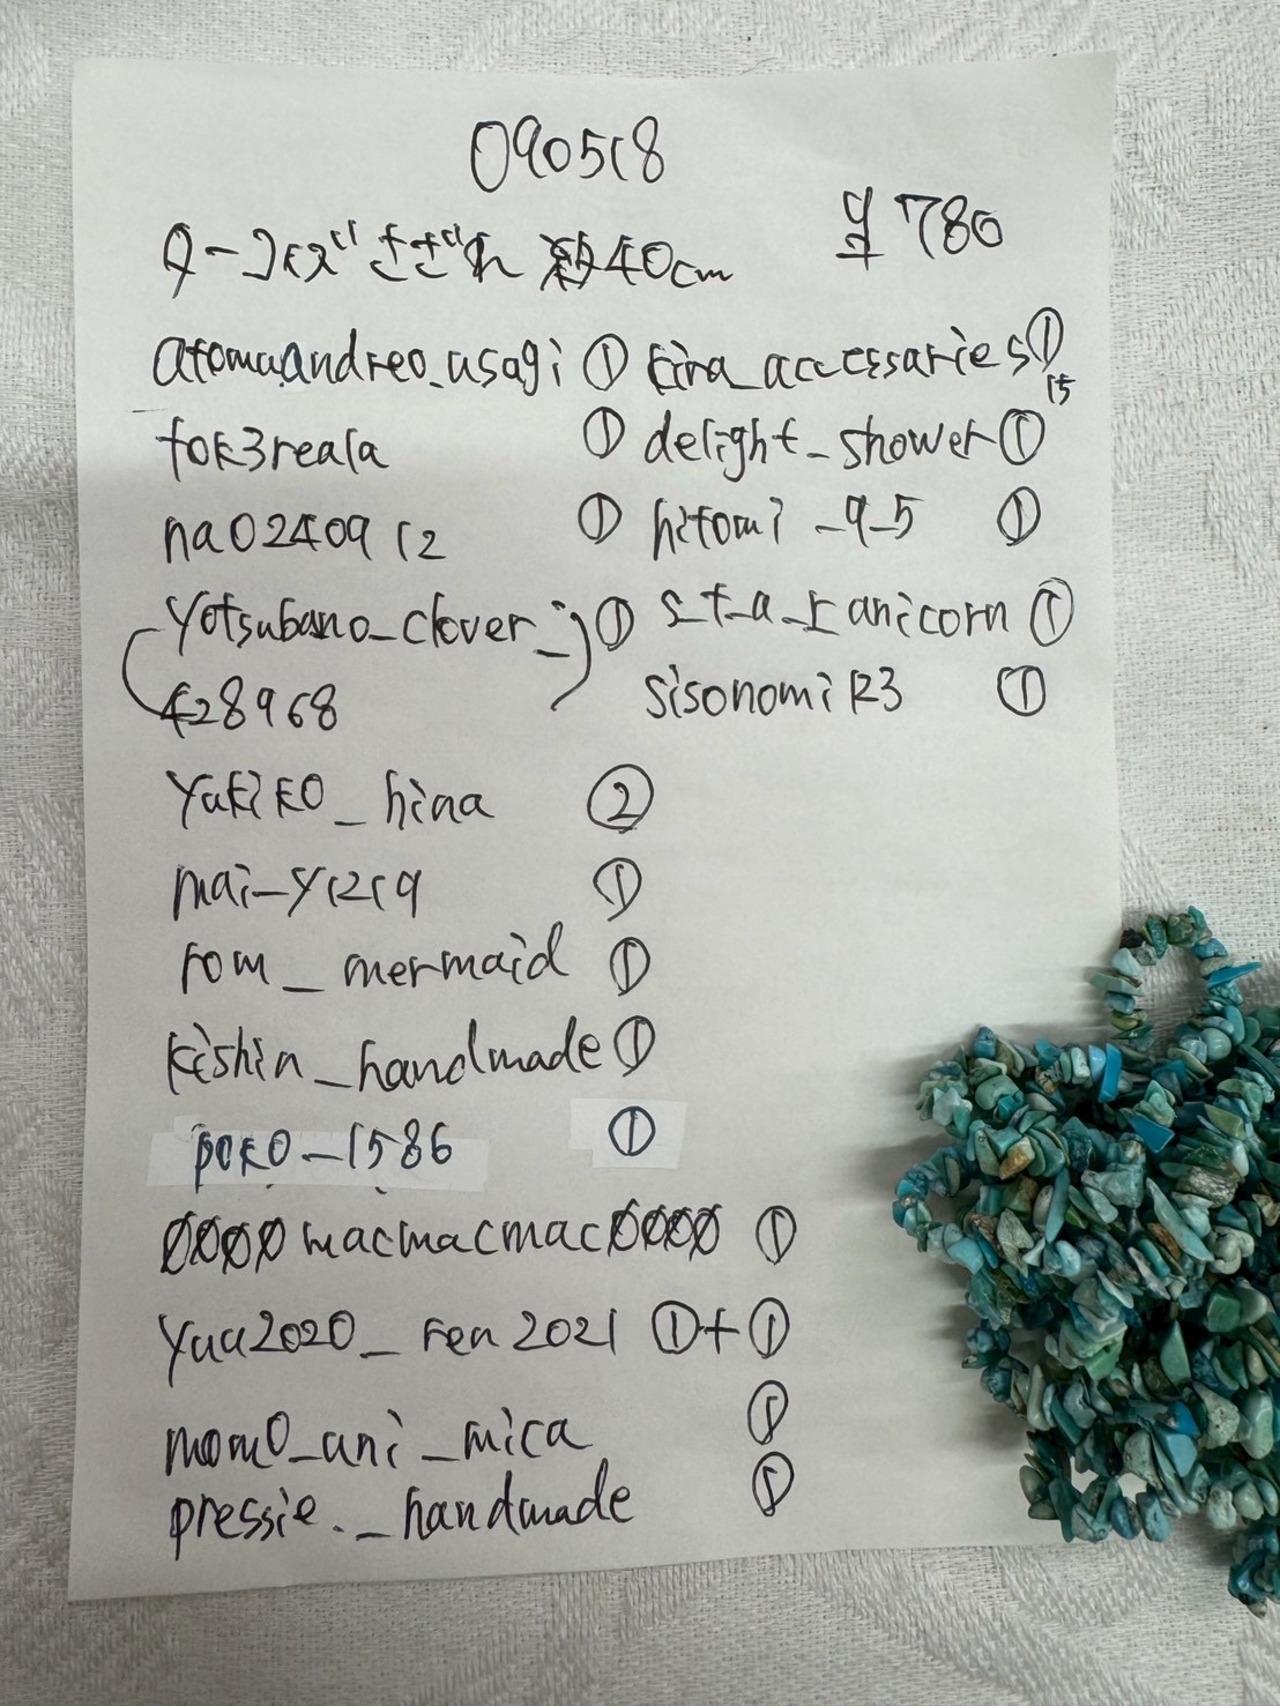 090518
¥780
ターコイズさざれ 約40cm
atomuandreo_usagi ①
tok3reala ①
na0240912 ①
yotsubano_clover_ ①
428968
yukiko_hina ②
mai_y1219 ①
rom_mermaid ①
kishin_handmade ①
poko_1586 ①
0000macmacmac0000 ①
yuu2020_ren2021 ①+①
momo_uni_mica ①
pressie._handmade ①
kira_accessaries ①
15
delight_shower ①
hitomi_9_5 ①
s_t_a_r_unicorn ①
sisonomiR3 ①